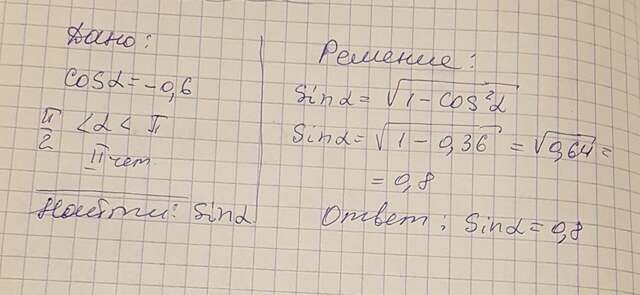 Дано:
cosα = -0,6
π/2 < α < π
II чет.
Найти: sinα
Решение:
sinα = √(1 - cos²α)
sinα = √(1 - 0,36) = √0,64 =
= 0,8
Ответ: sinα = 0,8